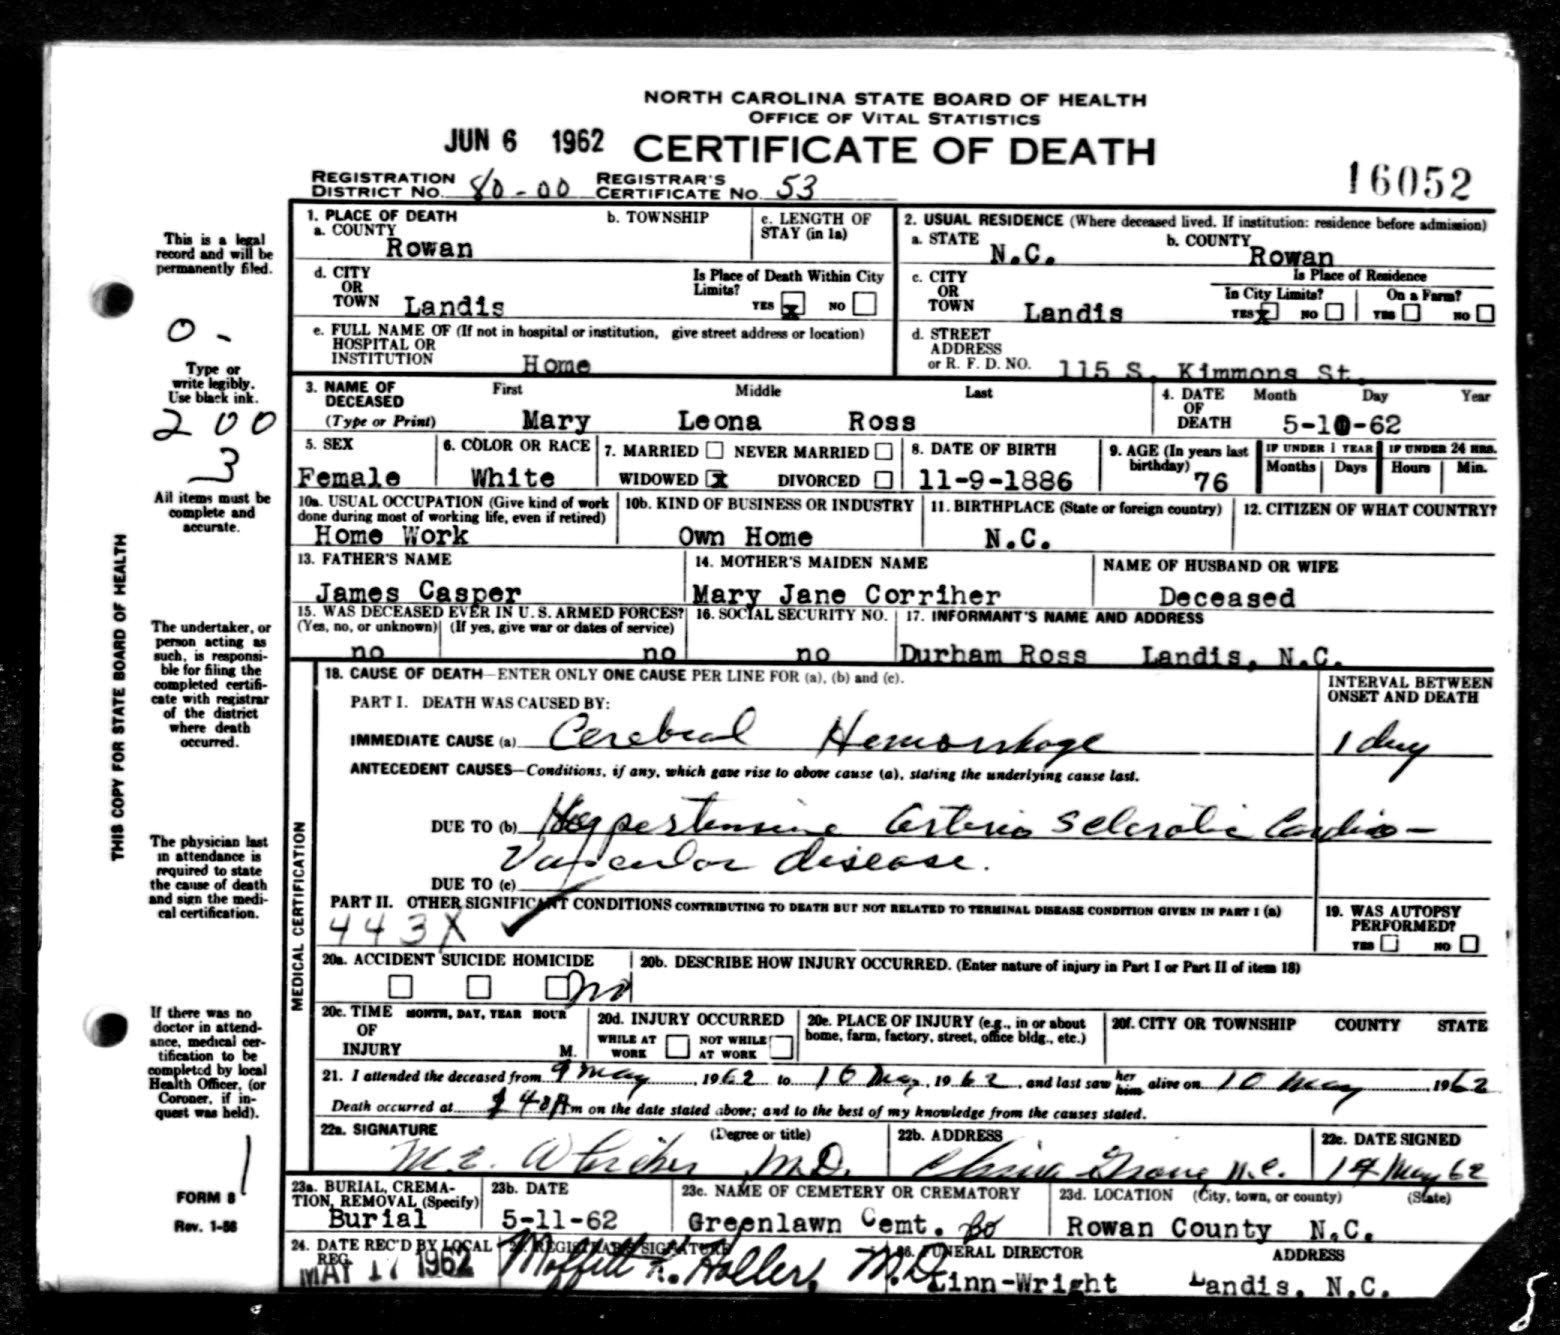 NORTH CAROLINA STATE BOARD OF HEALTH
OFFICE OF VITAL STATISTICS
JUN 6 1962 CERTIFICATE OF DEATH
REGISTRATION DISTRICT NO. 80-00 REGISTRAR'S CERTIFICATE NO. 53
16052
1. PLACE OF DEATH
a. COUNTY Rowan
b. TOWNSHIP
c. LENGTH OF STAY (in 1a)
2. USUAL RESIDENCE (Where deceased lived. If institution: residence before admission)
a. STATE N.C.
b. COUNTY Rowan
d. CITY OR TOWN Landis
Is Place of Death Within City Limits? YES x NO
c. CITY OR TOWN Landis
Is Place of Residence
In City Limits? YES x NO
On a Farm? YES NO
e. FULL NAME OF (If not in hospital or institution, give street address or location)
HOSPITAL OR
INSTITUTION Home
d. STREET ADDRESS or R. F. D. NO. 115 S. Kimmons St.
3. NAME OF DECEASED (Type or Print)
First Middle Last
Mary Leona Ross
4. DATE OF DEATH Month Day Year
5-10-62
5. SEX Female
6. COLOR OR RACE White
7. MARRIED NEVER MARRIED
WIDOWED x DIVORCED
8. DATE OF BIRTH 11-9-1886
9. AGE (In years last birthday) 76
IF UNDER 1 YEAR Months Days
IF UNDER 24 HRS. Hours Min.
10a. USUAL OCCUPATION (Give kind of work done during most of working life, even if retired)
Home Work
10b. KIND OF BUSINESS OR INDUSTRY
Own Home
11. BIRTHPLACE (State or foreign country)
N.C.
12. CITIZEN OF WHAT COUNTRY?
13. FATHER'S NAME
James Casper
14. MOTHER'S MAIDEN NAME
Mary Jane Corriher
NAME OF HUSBAND OR WIFE
Deceased
15. WAS DECEASED EVER IN U. S. ARMED FORCES?
(Yes, no, or unknown) (If yes, give war or dates of service)
no no
16. SOCIAL SECURITY NO.
no
17. INFORMANT'S NAME AND ADDRESS
Durham Ross Landis, N.C.
MEDICAL CERTIFICATION
18. CAUSE OF DEATH—ENTER ONLY ONE CAUSE PER LINE FOR (a), (b) and (c).
INTERVAL BETWEEN ONSET AND DEATH
PART I. DEATH WAS CAUSED BY:
IMMEDIATE CAUSE (a) Cerebral Hemorrhage 1 day
ANTECEDENT CAUSES—Conditions, if any, which gave rise to above cause (a), stating the underlying cause last.
DUE TO (b) Hypertensive Arterio Sclerotic Cardio-
Vascular disease.
DUE TO (c)
PART II. OTHER SIGNIFICANT CONDITIONS CONTRIBUTING TO DEATH BUT NOT RELATED TO TERMINAL DISEASE CONDITION GIVEN IN PART I (a)
443X ✓
19. WAS AUTOPSY PERFORMED?
YES NO
20a. ACCIDENT SUICIDE HOMICIDE
no
20b. DESCRIBE HOW INJURY OCCURRED. (Enter nature of injury in Part I or Part II of item 18)
20c. TIME OF INJURY MONTH, DAY, YEAR HOUR M.
20d. INJURY OCCURRED
WHILE AT WORK NOT WHILE AT WORK
20e. PLACE OF INJURY (e.g., in or about home, farm, factory, street, office bldg., etc.)
20f. CITY OR TOWNSHIP COUNTY STATE
21. I attended the deceased from 9 May, 1962 to 10 May, 1962, and last saw her him alive on 10 May 1962
Death occurred at 40 P.m on the date stated above; and to the best of my knowledge from the causes stated.
22a. SIGNATURE (Degree or title)
M.D.
22b. ADDRESS
China Grove N.C.
22c. DATE SIGNED
14 May 62
23a. BURIAL, CREMATION, REMOVAL (Specify)
Burial
23b. DATE
5-11-62
23c. NAME OF CEMETERY OR CREMATORY
Greenlawn Cemt.
23d. LOCATION (City, town, or county) (State)
Rowan County N.C.
24. DATE REC'D BY LOCAL REG.
MAY 17 1962
25. REGISTRAR'S SIGNATURE
Moffitt K. Holler, M.D.
26. FUNERAL DIRECTOR ADDRESS
Linn-Wright Landis, N.C.
THIS COPY FOR STATE BOARD OF HEALTH
This is a legal
record and will be
permanently filed.
0-
Type or
write legibly.
Use black ink.
200
3
All items must be
complete and
accurate.
The undertaker, or
person acting as
such, is responsi-
ble for filing the
completed certifi-
cate with registrar
of the district
where death
occurred.
The physician last
in attendance is
required to state
the cause of death
and sign the medi-
cal certification.
If there was no
doctor in attend-
ance, medical cer-
tification to be
completed by local
Health Officer, (or
Coroner, if in-
quest was held).
1
FORM 8
Rev. 1-56
5